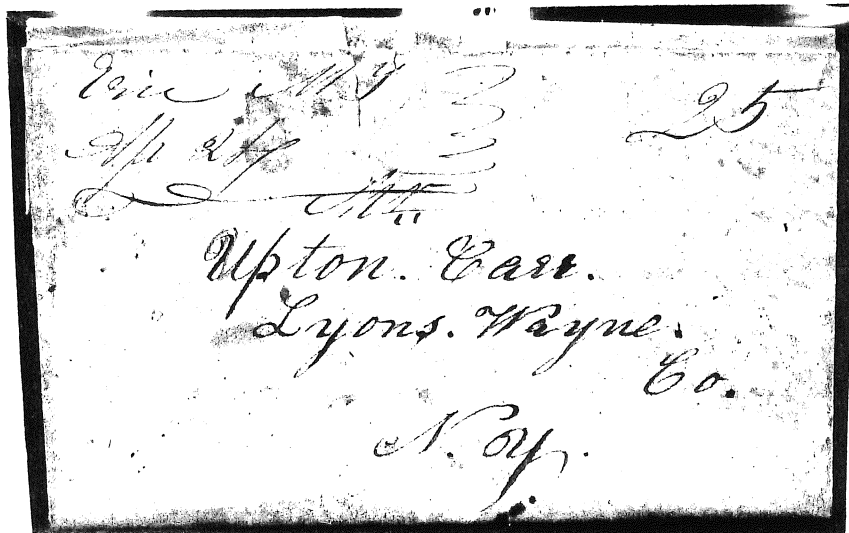 Erie M T
25
Ap 24
Mr.
Upton. Carr.
Lyons. Wayne.
Co.
N. Y.